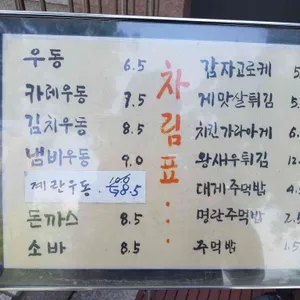 우동 6.5
카레우동 7.5
김치우동 8.5
냄비우동 9.0
계란우동 8.5
돈까스 8.5
소바 8.5
차림표
감자고로케
게맛살튀김
치킨가라아게 6
왕새우튀김 12
대게주먹밥 4
명란주먹밥 2.5
주먹밥 1.5